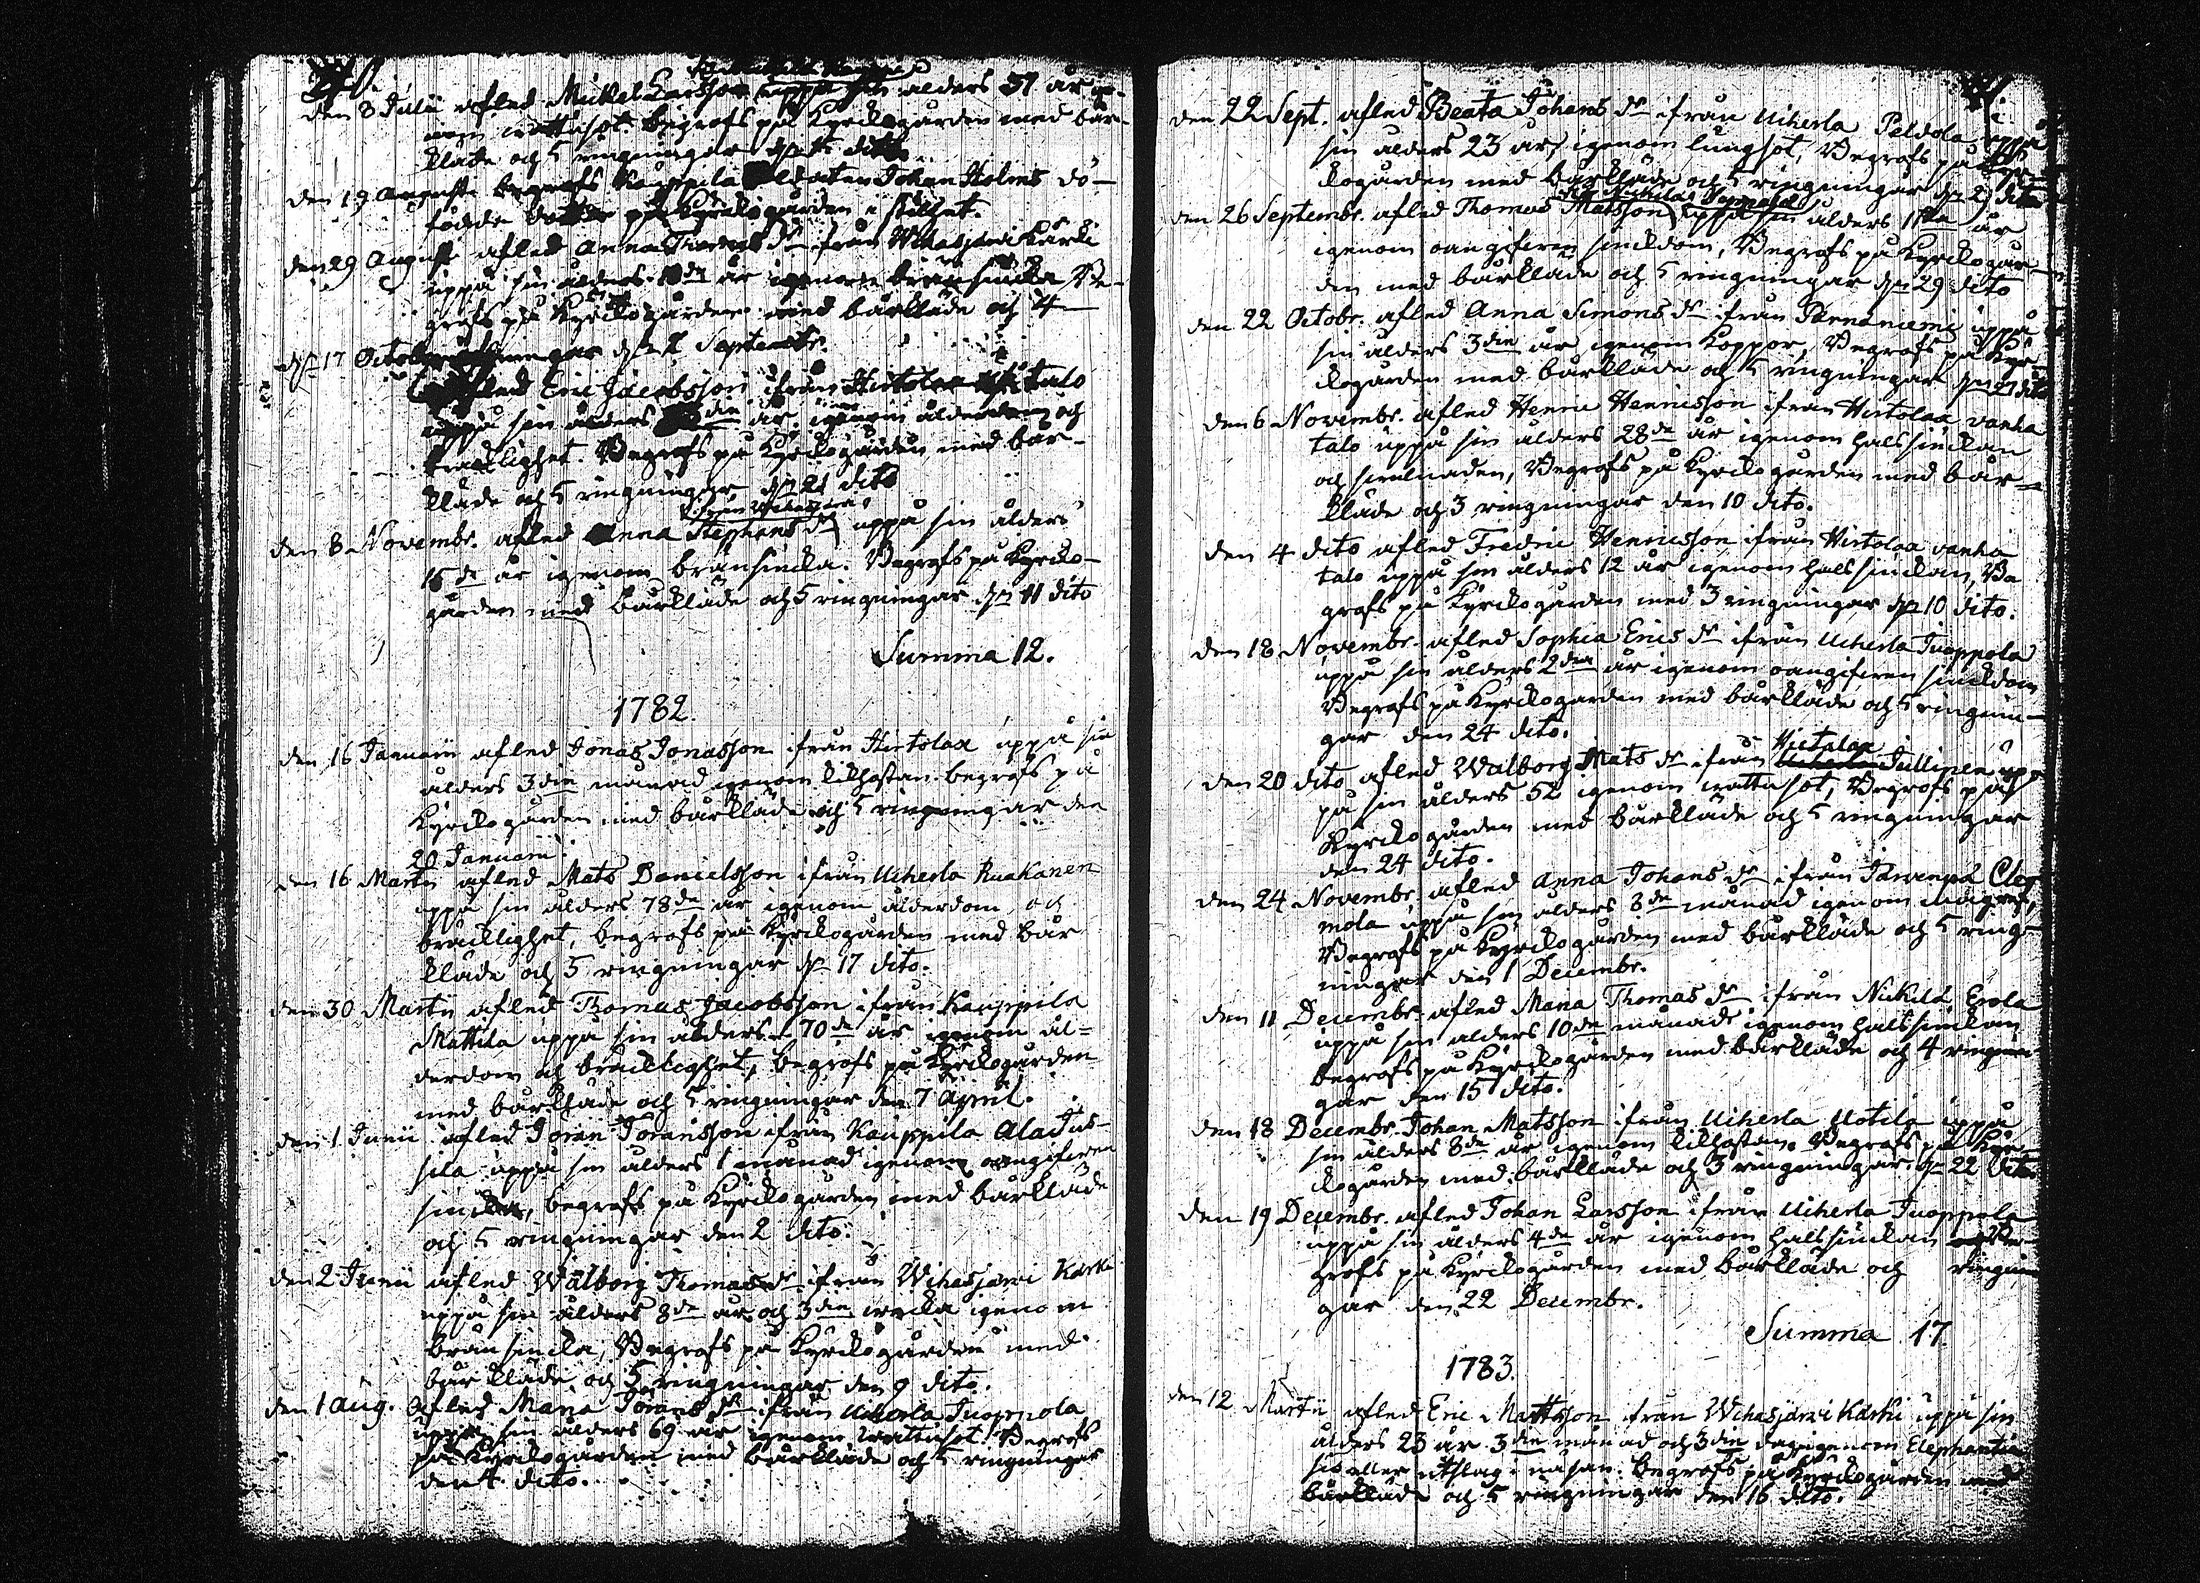 den 8 Julii afled Mickel Larsson uppå sin ålders 57 år ige-
nom wattusot. Begrofs på Kyrckogården med bår-
kläde och 5 ringningar dito
den 19 Augusti begrofs Kauppila Soldaten Johan Holms dö-
födde på Kyrckogården i stillhet.
den 29 Augusti afled Anna Thomas dr ifrån Wihasjärwi Kärki
uppå sin ålders 10de år igenom bränsiucka Be-
grofs på Kyrckogården med bårkläde och 4
ringningar dn 2 Septembr.
dn 17 Octobr
afled Eric Jacobsson ifrån Hirtolax talo
uppå sin ålders die år igenom ålderdom och
bräcklighet. Begrofs på Kyrckogården med bår-
kläde och 5 ringningar dn 21 dito
den 8 Novembr. afled Anna Stephens dr uppå sin ålders
15de år igenom bränsiucka. Begrofs på Kyrcko-
gården med bårkläde och 5 ringningar dn 11 dito
Summa 12.
1782.
den 16 Januarii afled Jonas Jonasson ifrån Hirtolax uppå sin
ålders 3die månad igenom kikhostan begrofs på
Kyrckogården med bårkläde och 5 ringningar den
20 Januarii.
den 16 Martii afled Mats Danielsson ifrån Uiherla Ruakanen
uppå sin ålders 78de år igenom ålderdom och
bräcklighet, begrofs på Kyrckogården med bår
kläde och 5 ringningar dn 17 dito.
den 30 Martii afled Thomas Jacobsson ifrån Kauppila
Mattila uppå sin ålders 70de år igenom ål=
derdom och bräcklighet, begrofs på Kyrckogården
med bårkläde och 5 ringningar den 7 April.
den 1. Junii afled Jöran Jöransson ifrån Kauppila Ala Jus-
sila uppå sin ålders 1 månad igenom oangifwen
siucka, begrofs på Kyrckogården med bårkläde
och 5 ringningar den 2 dito.
den 2 Junii afled Walborg Thomas dr ifrån Wihasjärwi Kärki
uppå sin ålders 8de år och 3die wecka igenom
bränsiucka, Begrofs på Kyrckogården med
bårkläde och 5 ringningar den 9 dito.
den 1 Aug. afled Maria Jörans dr ifrån Uiherla Tuoppola
uppå sin ålders 69 år igenom wattusot. Begrofs
på Kyrckogården med bårkläde och 5 ringningar
den 4 dito.
den 22 Sept. afled Beata Johans dr ifrån Uiherla Peldola uppå
sin ålders 23 år, igenom lungsot, Begrofs på Kyr-
ckogården med bårkläde och 5 ringningar dn 29 dito
den 26 Septembr. afled Thomas Matsson uppå sin ålders 11te år
igenom oangifwen siuckdom, Begrofs på Kyrckogår-
den med bårkläde och 5 ringningar dn 29 dito
den 22 Octobr. afled Anna Simons dr ifrån Pärnäniemi uppå
sin ålders 3die år igenom Koppor, Begrofs på Kyr-
ckogården med bårkläde och 5 ringningar dn 27 dito
den 6 Novembr. afled Henric Henricsson ifrån Hirtolax vanha
talo uppå sin ålders 28de år igenom halssiuckan
och swulnaden, Begrofs på Kyrckogården med bår=
kläde och 3 ringningar den 10 dito.
den 4 dito afled Fredric Henricsson ifrån Hirtolax vanha
talo uppå sin ålders 12 år igenom halssiuckan, Be
grofs på Kyrckogården med 3 ringningar dn 10 dito.
den 18 Novembr. afled Sophia Erics dr ifrån Uiherla Tuoppola
uppå sin ålders 2dra år igenom oangifwen siuckdom
Begrofs på Kyrckogården med bårkläde och 5 ringnin-
gar den 24 dito.
Hirtolax
den 20 dito afled Walborg Mats dr ifrån Uiherla Tullinen up-
på sin ålders 52 igenom wattusot, Begrofs på
Kyrckogården med bårkläde och 5 ringningar
den 24 dito.
den 24 Novembr. afled Anna Johans dr ifrån Järwenpä Cleg
mola uppå sin ålders 8de månad igenom magref,
Begrofs på Kyrckogården med bårkläde och 5 ring-
ningar den 1 Decembr.
den 11 Decembr. afled Maria Thomas dr ifrån Nickilä Erola
uppå sin ålders 10de månad igenom halssiuckan
begrofs på Kyrckogården med bårkläde och 4 ringnin-
gar den 15 dito.
den 18 Decembr. Johan Matsson ifrån Uiherla Uotila uppå
sin ålders 8de år igenom kikhostan. Begrofs på Kyr-
ckogården med bårkläde och 3 ringningar. dn 22 dito
den 19 Decembr. afled Johan Larsson ifrån Uiherla Tuoppola
uppå sin ålders 4de år igenom halssiuckan Be-
grofs på Kyrckogården med bårkläde och ringnin
gar den 22 Decembr.
Summa 17.
1783.
den 12 Martii afled Eric Mattsson ifrån Wihasjärwi Kärki uppå sin
ålders 23 år 3die månad och 3die dag igenom Elephantia
sis eller utslag i näsan. begrofs på Kyrckogården med
bårkläde och 5 ringningar den 16 dito.